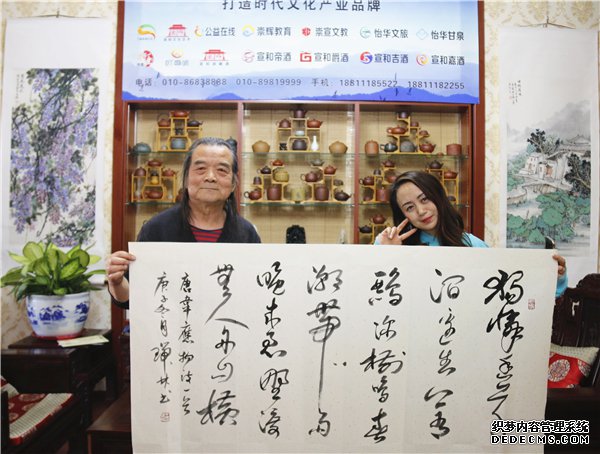 打造时代文化产业品牌
公益在线 崇辉教育 崇宣文教 怡华文旅 怡华甘泉
宣和帝酒 宣和爵酒 宣和吉酒 宣和嘉酒
电话：010-86838868 010-89819999 手机：18811185522 18811182255
獨憐幽草
澗邊生上有
鸝深樹鳴春
潮帶雨
晚來急野渡
無人舟自橫
唐韋應物詩一首
庚子冬月 林书
织梦内容管理系统
DEDECMS.COM